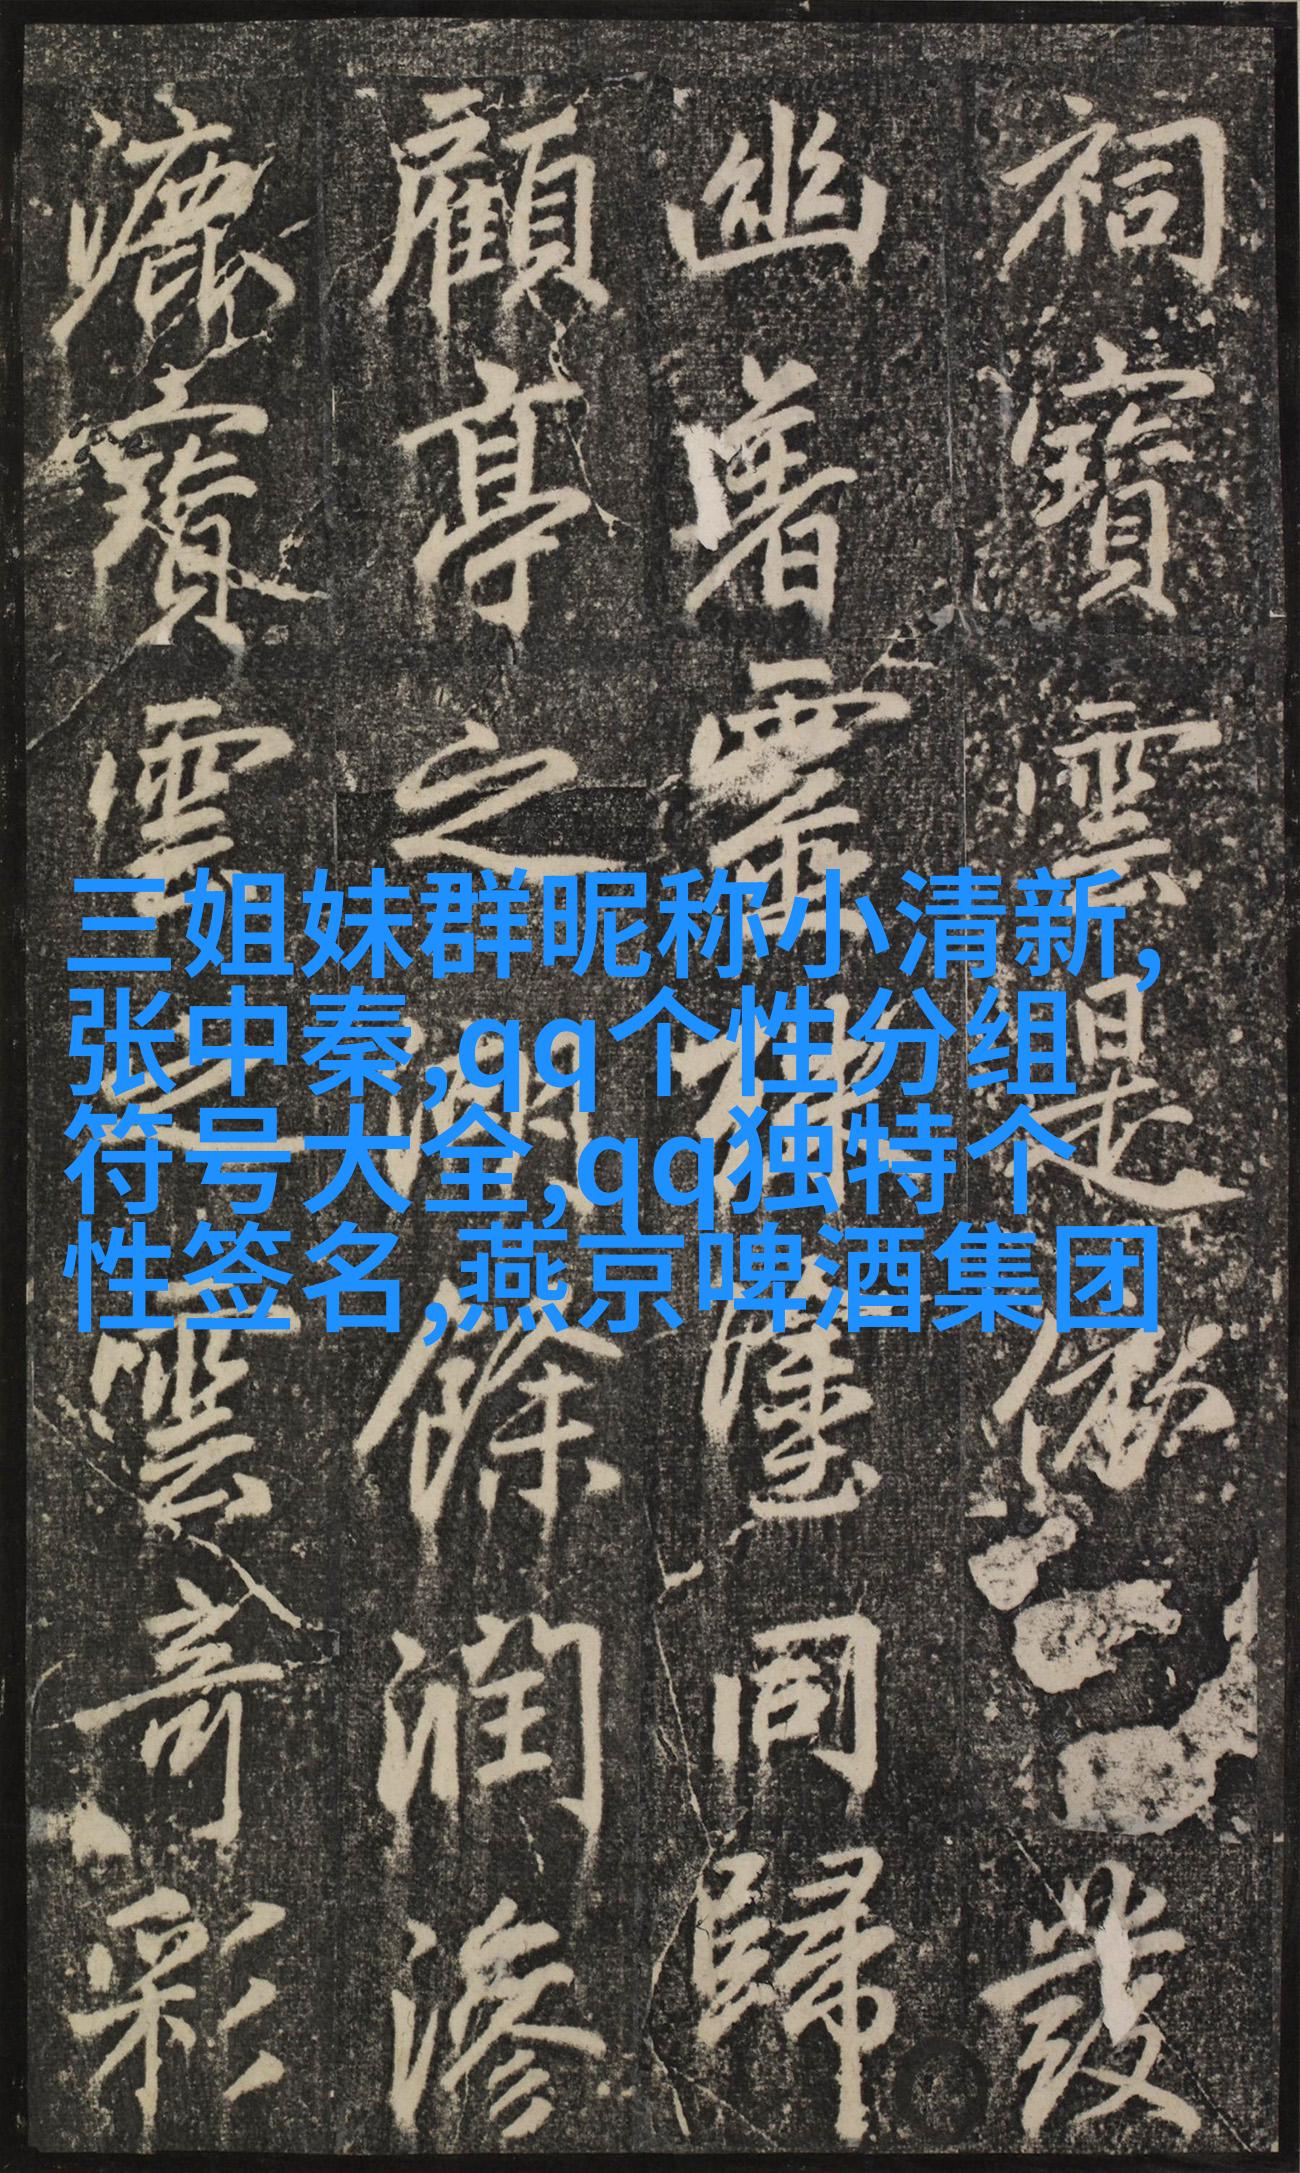 祠寶雲是發
幽署同歸
顧亭之湖餘潤滲
漉寶雲之雲奇彩
三姐妹群昵称小清新,
张中秦,qq个性分组
符号大全,qq独特个
性签名,燕京啤酒集团